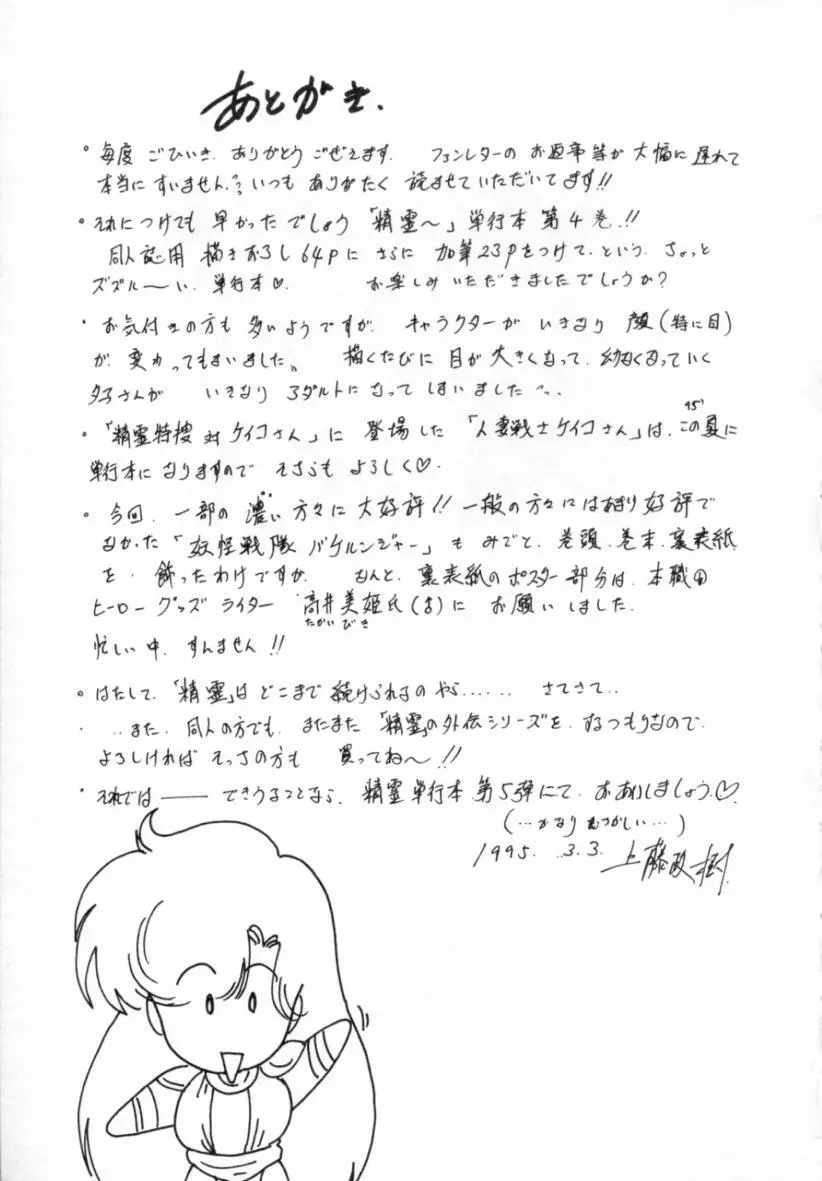 あとがき.
・毎度 ごひいき ありがとう ごぜえます. ファンレターの お返事等が 大幅に 遅れて
本当に すいません? いつも ありがたく 読ませていただいてます!!
・それにつけても 早かったでしょう 「精霊〜」単行本 第4巻!!
同人誌用 描きおろし64Pに さらに 加筆23Pをつけて. という. ちょっと
ズズルーい. 単行本♡. お楽しみ いただきましたでしょうか?
・お気付きの方も 多いようですが. キャラクターが いきなり 顔(特に目)
が. 変わってしまいました。 描くたびに 目が 大きくなって. 幼くなっていく
タ子さんが いきなり アダルトになって しまいました…
・「精霊特捜 対 ケイコさん」に 登場した 「人妻戦士ケイコさん」は, この夏に
'95
単行本に なりますので そちらも よろしく♡.
・今回. 一部の 濃い 方々に 大好評!! 一般の方々には あまり 好評で
なかった「妖怪戦隊 バケルンジャー」も みごと. 巻頭. 巻末. 裏表紙
を. 飾ったわけですが. なんと. 裏表紙の ポスター部分は. 本職の
ヒーローグッズ ライター 高井美姫氏(は)に お願いしました.
たかい びき
忙しい中. すんません!!
・はたして.「精霊」は どこまで 続けられるのやら...... さてさて..
・..また. 同人の方でも. またまた 「精霊」の外伝シリーズを. するつもりなので.
よろしければ そっちの方も 買ってね〜!!
・それでは—— できうることなら. 精霊単行本 第5弾にて. おあいしましょう.♡
(…かなり むつかしい…)
1995. 3.3. 上藤政樹